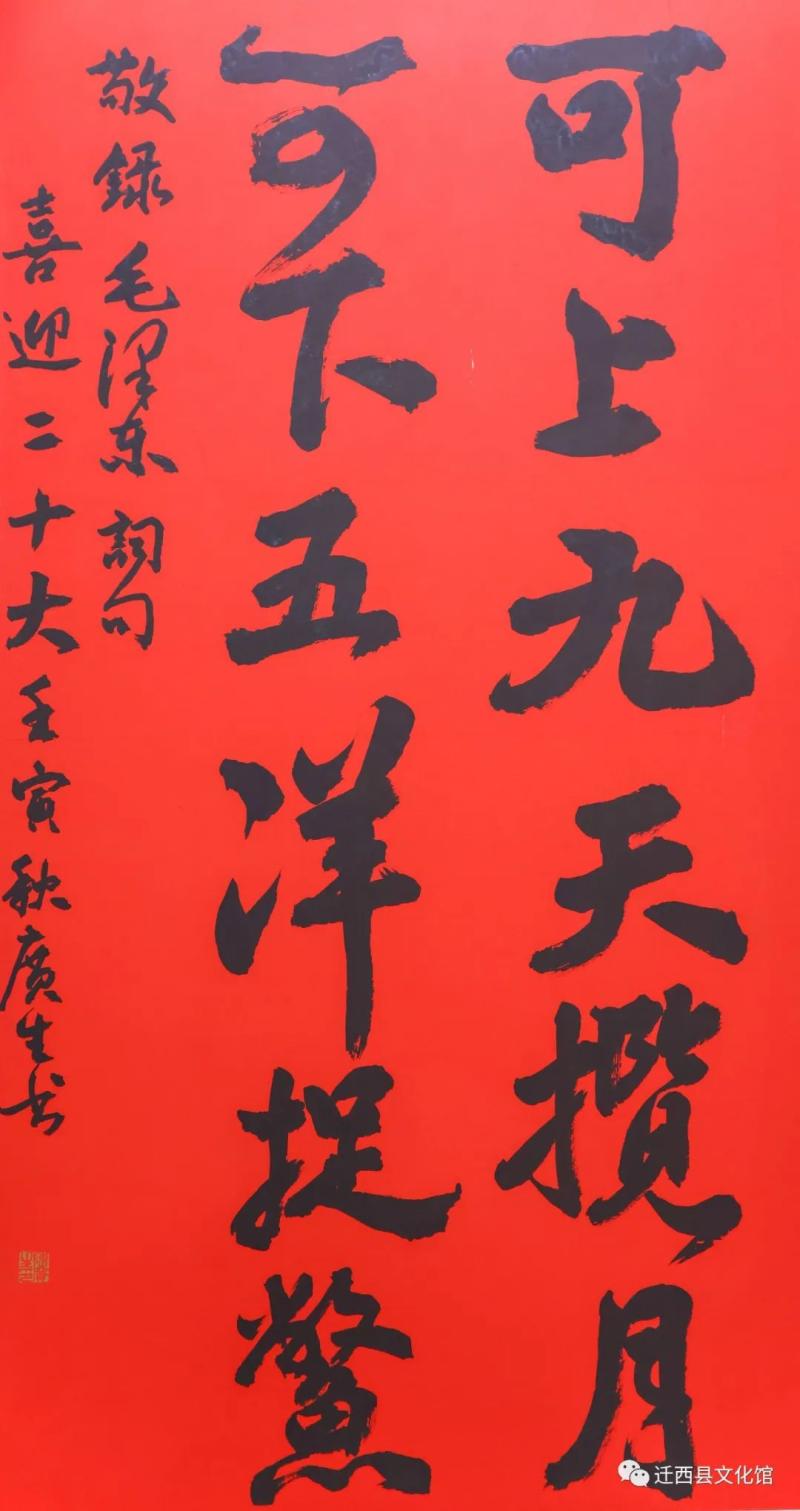 可上九天攬月
可下五洋捉鱉
敬録毛澤東詞句
喜迎二十大壬寅秋廣生书
迁西县文化馆